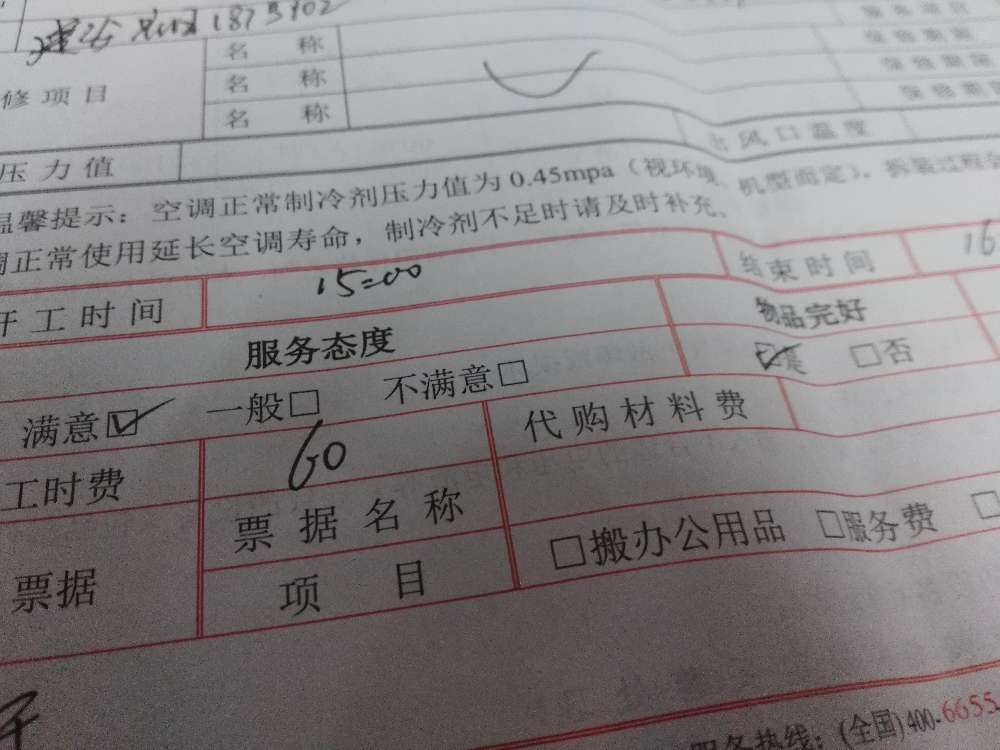 1875902
名 称
修项目 名 称 保修期限
名 称 保修期限
压力值 出风口温度
温馨提示：空调正常制冷剂压力值为0.45mpa（视环境、机型而定），拆装过程会
调正常使用延长空调寿命，制冷剂不足时请及时补充、
开工时间 15=00 结束时间 16
服务态度 物品完好
满意☑ 一般□ 不满意□ ☑是 □否
工时费 60 代购材料费
票据 票据名称 □搬办公用品 □服务费 □
项 目
服务热线：(全国)400-6655-